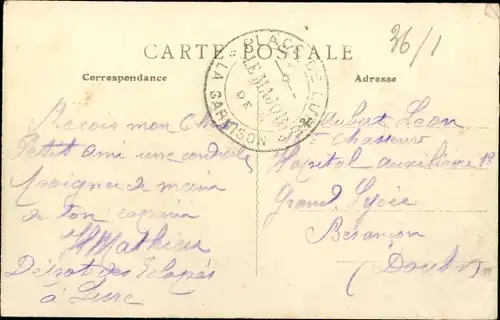 26/1
CARTE POSTALE
PLACE DE LURE
LE MAJOR
DE
LA GARNISON
Correspondance
Adresse
Reçois mon cher
Petit ami une cordiale
poignée de main
de ton copain
H Mathieu
Dépot des Eclopés
à Lure
Aubert Léon
Chasseur
Hopital auxiliaire
Grand Lycée
Besançon
(Doubs)